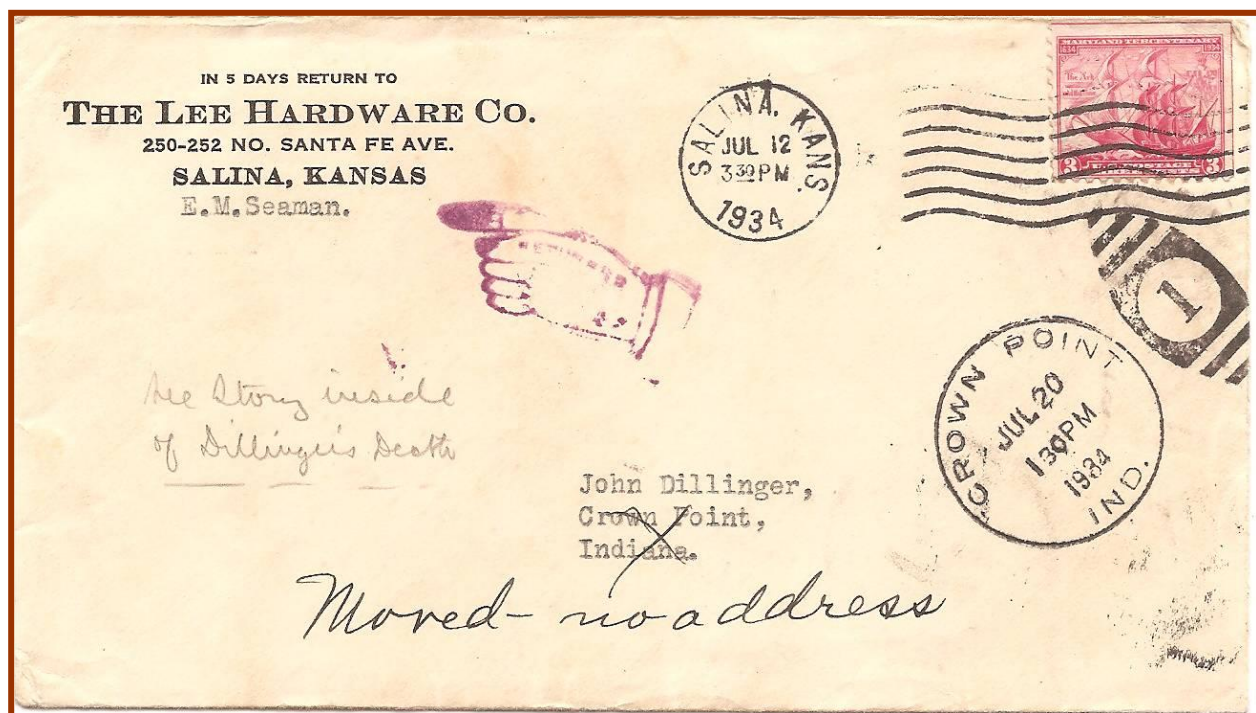 IN 5 DAYS RETURN TO
THE LEE HARDWARE CO.
250-252 NO. SANTA FE AVE.
SALINA, KANSAS
E.M.Seaman.
SALINA, KANS.
JUL 12
3 30 PM
1934
MARYLAND TERCENTENARY
1634 1934
The Ark
3 3
1
CROWN POINT
JUL 20
1 30 PM
1934
IND.
See Story inside
of Dillinger's Death
John Dillinger,
Crown Point,
Indiana.
Moved - no address